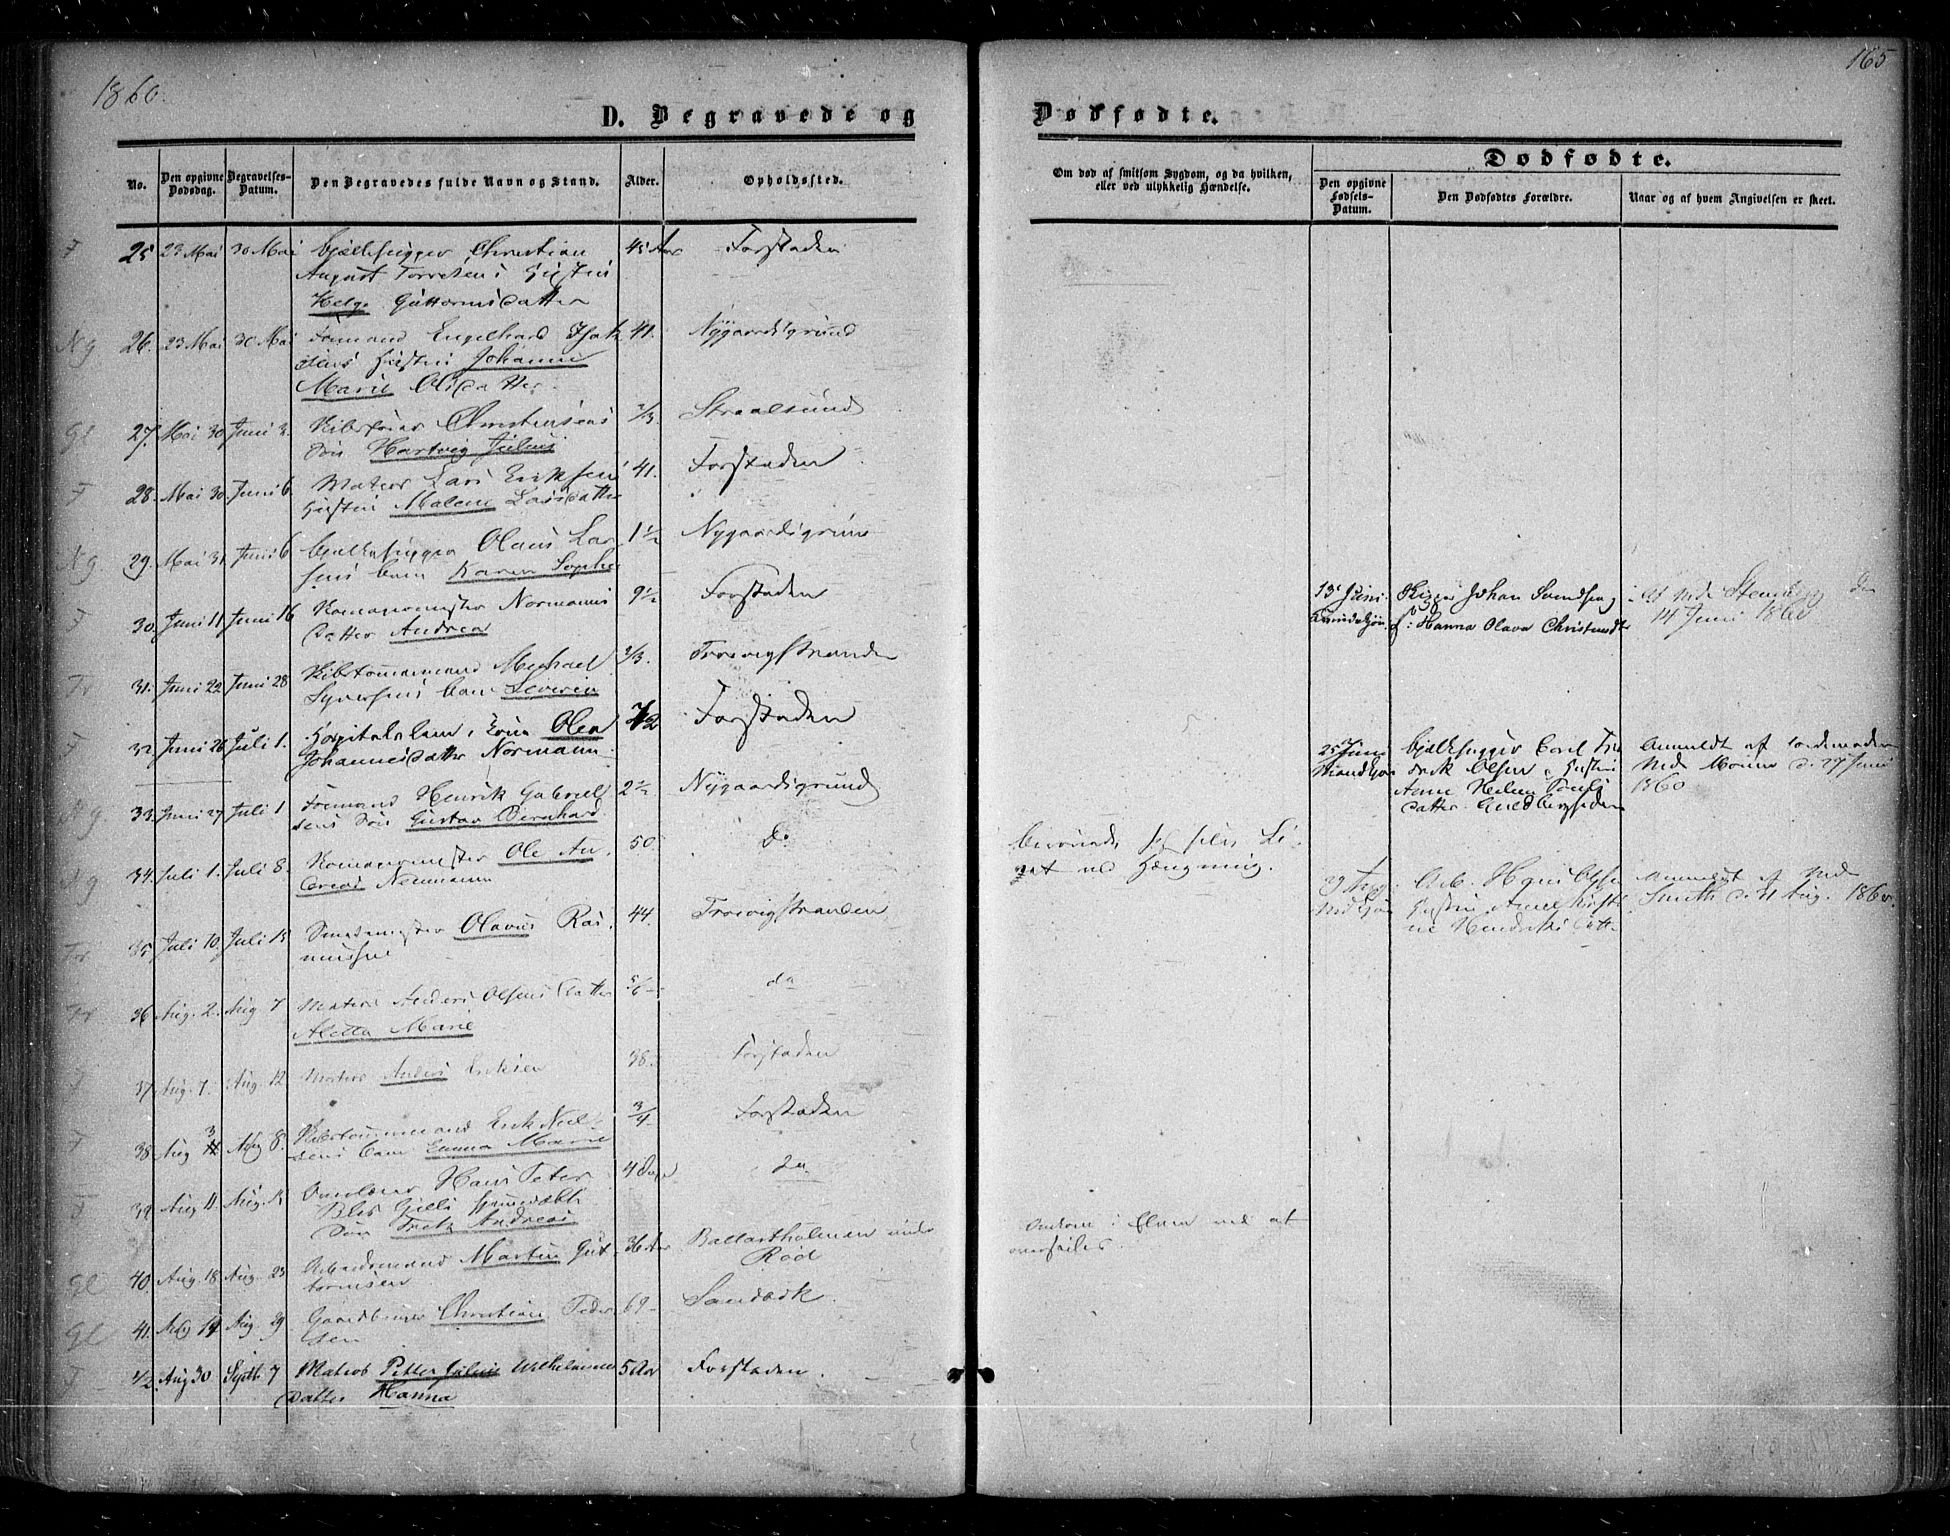 1860.
165
D. Begravede og
Dødfødte.
No.
Den opgivne Dødsdag.
Begravelses-Datum.
Den Begravedes fulde Navn og Stand.
Alder.
Opholdssted.
Om død af smitsom Sygdom, og da hvilken,
eller ved ulykkelig Hændelse.
Dødfødte.
Den opgivne Fødsels-Datum.
Den Dødfødtes Forældre.
Naar og af hvem Angivelsen er skeet.
F 25 23 Mai 30 Mai Christian 45 Aar Forstaden
August Torresens Hustru
Helge Guttormsdatter
Ng 26. 23 Mai 30 Mai Formand Engelhard Isak 41. Nygaardsgrund
sens Hustru Johanne
Marie Olsdatter.
Gl 27. Mai 30 Juni 3. Christensens 2/3 Straalsund
Søn Hartvig Julius
F 28. Mai 30. Juni 6. Matros Lars Eriksens 41. Forstaden
Hustru Malene Larsdatter
Ng. 29. Mai 31. Juni 6 Olaus Lar 1 1/2 Nygaardsgrund
sens Barn Karen Sophie
F 30. Juni 11 Juni 16 Normanns 9 1/2 Forstaden
Datter Andrea
Tr 31. Juni 22 Juni 28 Michael 2/3. Trosvigstranden
Syversens Barn Severin
F 32. Juni 26 Juli 1. Hospitalslem, Olea 72 Forstaden
Johannesdatter Normann
Ng. 33. Juni 27 Juli 1 Formand Henrik Gabriel 2 1/2 Nygaardsgrund
sens Søn Gustav Bernhard.
Ng 34. Juli 1. Juli 8. Ole An 50. Do
dreas Neumann
Berøvede sig selv Li-
vet ved Hængning.
Tr 35. Juli 10. Juli 15 Olavus Ras 44. Trosvigstranden
mussen
Tr 36 Aug. 2. Aug 7 Matros Anders Olsens Datter 5/6 do
Aletta Marie
F 37 Aug. 7. Aug 12 Matros Anders Eriksen 38. Forstaden
F 38. Aug 3 Aug 8. Erik Niel- 3/4 Forstaden
sens Barn Emma Marie
F 39. Aug 11 Aug. Hans Peter 4 Dage do
Søn Fretz Andreas
Gl 40. Aug. 18 Aug. 23 Arbeidsmand Martin Gut- 36 Aar Ballastholmen under
tormsen Rød
Omkom i Elven ved at
overseiles.
Gl 41. Aug 19 Aug. 29 Gaardbruger Christian Peder 69 Sandbæk.
sen
F 42. Aug 30 Septb 7 Matros Petter Julius Wilhelmsens 5 Aar Forstaden.
Datter Hanna
13 Juni Johan Svendsen og
H: Hanna Olava Christensdtr
Af Md. Stenberg den
14 Juni 1860
25 Juni Carl Fre
drik Olsen, Hustru
Anne Helene Pouls
datter.
Anmeldt af Jordemoder
Md. d. 27 Juni
1860
29 Aug. Arb. Hans Olsen
Hustru
Hendriksdatter
Anmeldt af Md
Smith d. 31 Aug. 1860.